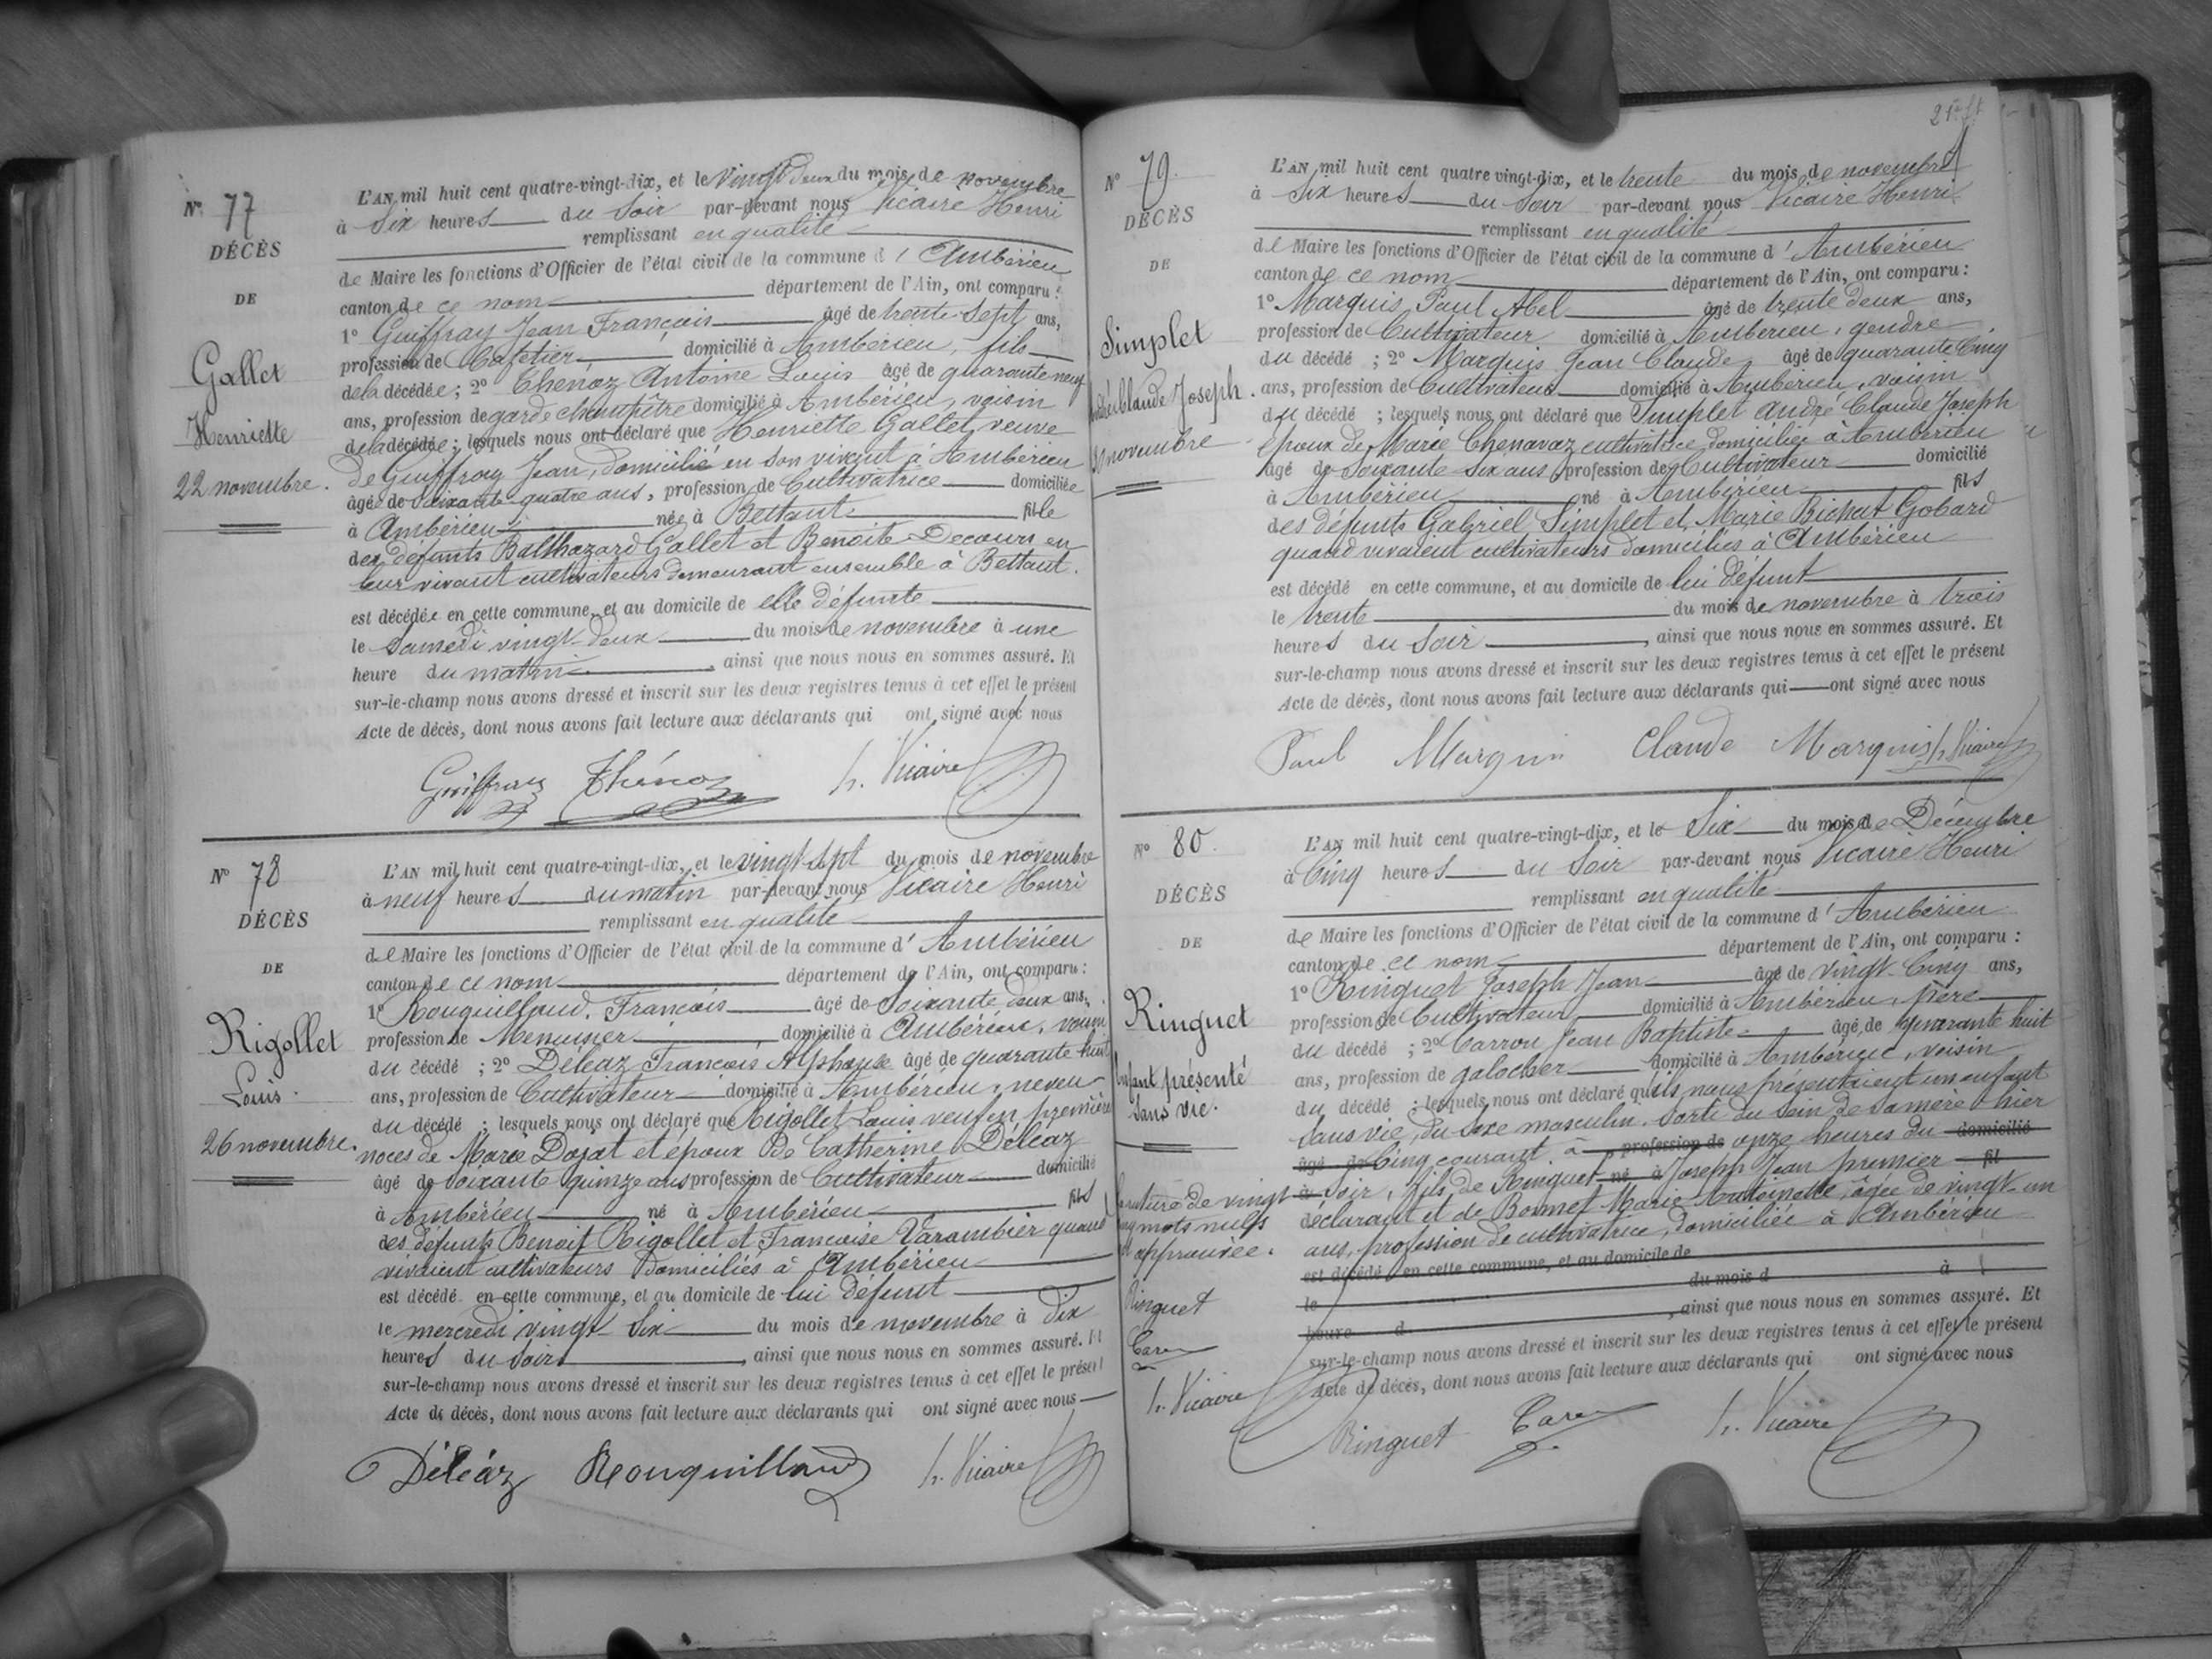 Nº 77
DÉCÈS
DE
Gallet
Henriette
22 novembre.
L'AN mil huit cent quatre-vingt-dix, et le Vingt deux du mois de novembre
à Six heures du Soir par-devant nous Vicaire Henri
remplissant en qualité
de Maire les fonctions d'Officier de l'état civil de la commune d'Ambérieu
canton de ce nom département de l'Ain, ont comparu :
1º Guiffray Jean François âgé de trente-Sept ans,
profession de Cafetier domicilié à Ambérieu, fils
de la décédée ; 2º Thénoz Antoine Louis âgé de quarante neuf
ans, profession de garde champêtre domicilié à Ambérieu, voisin
de la décédée ; lesquels nous ont déclaré que Henriette Gallet, veuve
de Guiffray Jean, domicilié en son vivant à Ambérieu
âgée de Soixante-quatre ans, profession de Cultivatrice domiciliée
à Ambérieu née à Bettant fille
des défunts Balthazard Gallet et Benoite Decours en
leur vivant cultivateurs demeurant ensemble à Bettant.
est décédée en cette commune, et au domicile de elle défunte
le Samedi vingt-deux du mois de novembre à une
heure du matin, ainsi que nous nous en sommes assuré. Et
sur-le-champ nous avons dressé et inscrit sur les deux registres tenus à cet effet le présent
Acte de décès, dont nous avons fait lecture aux déclarants qui ont signé avec nous
Guiffray Thénoz h. Vicaire
Nº 78
DÉCÈS
DE
Rigollet
Louis.
26 novembre.
L'AN mil huit cent quatre-vingt-dix, et le vingt-sept du mois de novembre
à neuf heures du matin par-devant nous Vicaire Henri
remplissant en qualité
de Maire les fonctions d'Officier de l'état civil de la commune d'Ambérieu
canton de ce nom département de l'Ain, ont comparu :
1º Rouquillaud. François âgé de Soixante deux ans,
profession de Menuisier domicilié à Ambérieu, voisin
du décédé ; 2º Déléaz François Alphonse âgé de quarante huit
ans, profession de Cultivateur domicilié à Ambérieu, neveu
du décédé ; lesquels nous ont déclaré que Rigollet Louis veuf en premières
noces de Marie Dojat et époux De Catherine Déléaz
âgé de Soixante quinze ans profession de Cultivateur domicilié
à Ambérieu né à Ambérieu fils
des défunts Benoit Rigollet et Françoise Varambier quand
vivaient cultivateurs domiciliés à Ambérieu
est décédé en cette commune, et au domicile de lui défunt
le mercredi vingt-Six du mois de novembre à Dix
heures du Soir, ainsi que nous nous en sommes assuré. Et
sur-le-champ nous avons dressé et inscrit sur les deux registres tenus à cet effet le présent
Acte de décès, dont nous avons fait lecture aux déclarants qui ont signé avec nous
Déléaz Rouquillaud h. Vicaire
Nº 79.
DÉCÈS
DE
Simplet
André Claude Joseph.
30 novembre
L'AN mil huit cent quatre vingt-dix, et le trente du mois de novembre
à Six heures du Soir par-devant nous Vicaire Henri
remplissant en qualité
de Maire les fonctions d'Officier de l'état civil de la commune d'Ambérieu
canton de ce nom département de l'Ain, ont comparu :
1º Marquis Paul Abel âgé de trente deux ans,
profession de Cultivateur domicilié à Ambérieu, gendre
du décédé ; 2º Marquis Jean Claude âgé de quarante Cinq
ans, profession de Cultivateur domicilié à Ambérieu, voisin
du décédé ; lesquels nous ont déclaré que Simplet André Claude Joseph
époux de Marie Chenavaz cultivatrice domiciliée à Ambérieu
âgé de Soixante-Six ans, profession de Cultivateur domicilié
à Ambérieu né à Ambérieu fils
des défunts Gabriel Simplet et Marie Bichat Gobard
quand vivaient cultivateurs domiciliés à Ambérieu
est décédé en cette commune, et au domicile de lui défunt
le trente du mois de novembre à trois
heures du Soir, ainsi que nous nous en sommes assuré. Et
sur-le-champ nous avons dressé et inscrit sur les deux registres tenus à cet effet le présent
Acte de décès, dont nous avons fait lecture aux déclarants qui ont signé avec nous
Paul Marquis Claude Marquis h. Vicaire
Nº 80.
DÉCÈS
DE
Ringuet
Enfant présenté
Sans vie.
L'AN mil huit cent quatre-vingt-dix, et le Six du mois de Décembre
à Cinq heures du Soir par-devant nous Vicaire Henri
remplissant en qualité
de Maire les fonctions d'Officier de l'état civil de la commune d'Ambérieu
canton de ce nom département de l'Ain, ont comparu :
1º Ringuet Joseph Jean âgé de vingt-Cinq ans,
profession de Cultivateur domicilié à Ambérieu, père
du décédé ; 2º Carron Jean Baptiste âgé de quarante huit
ans, profession de galocher domicilié à Ambérieu, voisin
du décédé ; lesquels nous ont déclaré qu'ils nous présentaient un enfant
Sans vie, du sexe masculin, sorti du sein de sa mère hier
âgé de Cinq courant à profession de onze heures du domicilié
à Soir, fils de Ringuet né à Joseph Jean premier fil
déclarant et de Bonnet Marie Antoinette, âgée de vingt-un
ans, profession de cultivatrice, domiciliée à Ambérieu
est décédé en cette commune, et au domicile de
le du mois d à
heure d, ainsi que nous nous en sommes assuré. Et
sur-le-champ nous avons dressé et inscrit sur les deux registres tenus à cet effet le présent
Acte de décès, dont nous avons fait lecture aux déclarants qui ont signé avec nous
rature de vingt
mots nuls
approuvée.
Ringuet
Caron
h. Vicaire
Ringuet Caron h. Vicaire